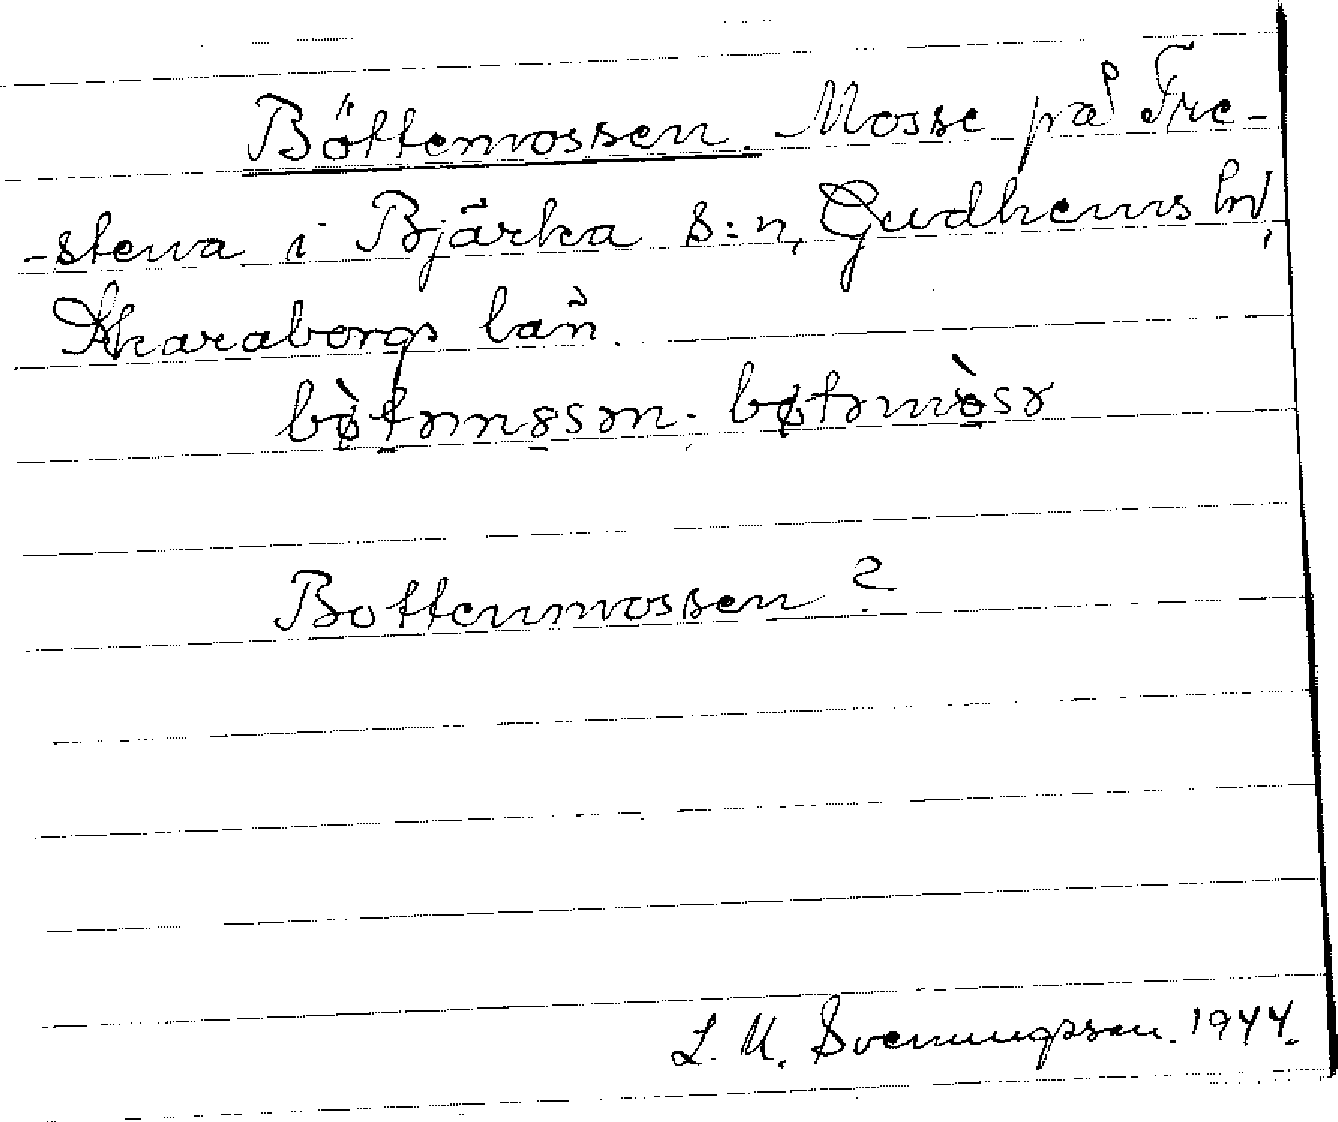 Böttemossen. Mosse på Fre-
-stena i Bjärka s:n, Gudhems hd,
Skaraborgs län.
Bottenmossen?
L. M. Svenungsson. 1944.